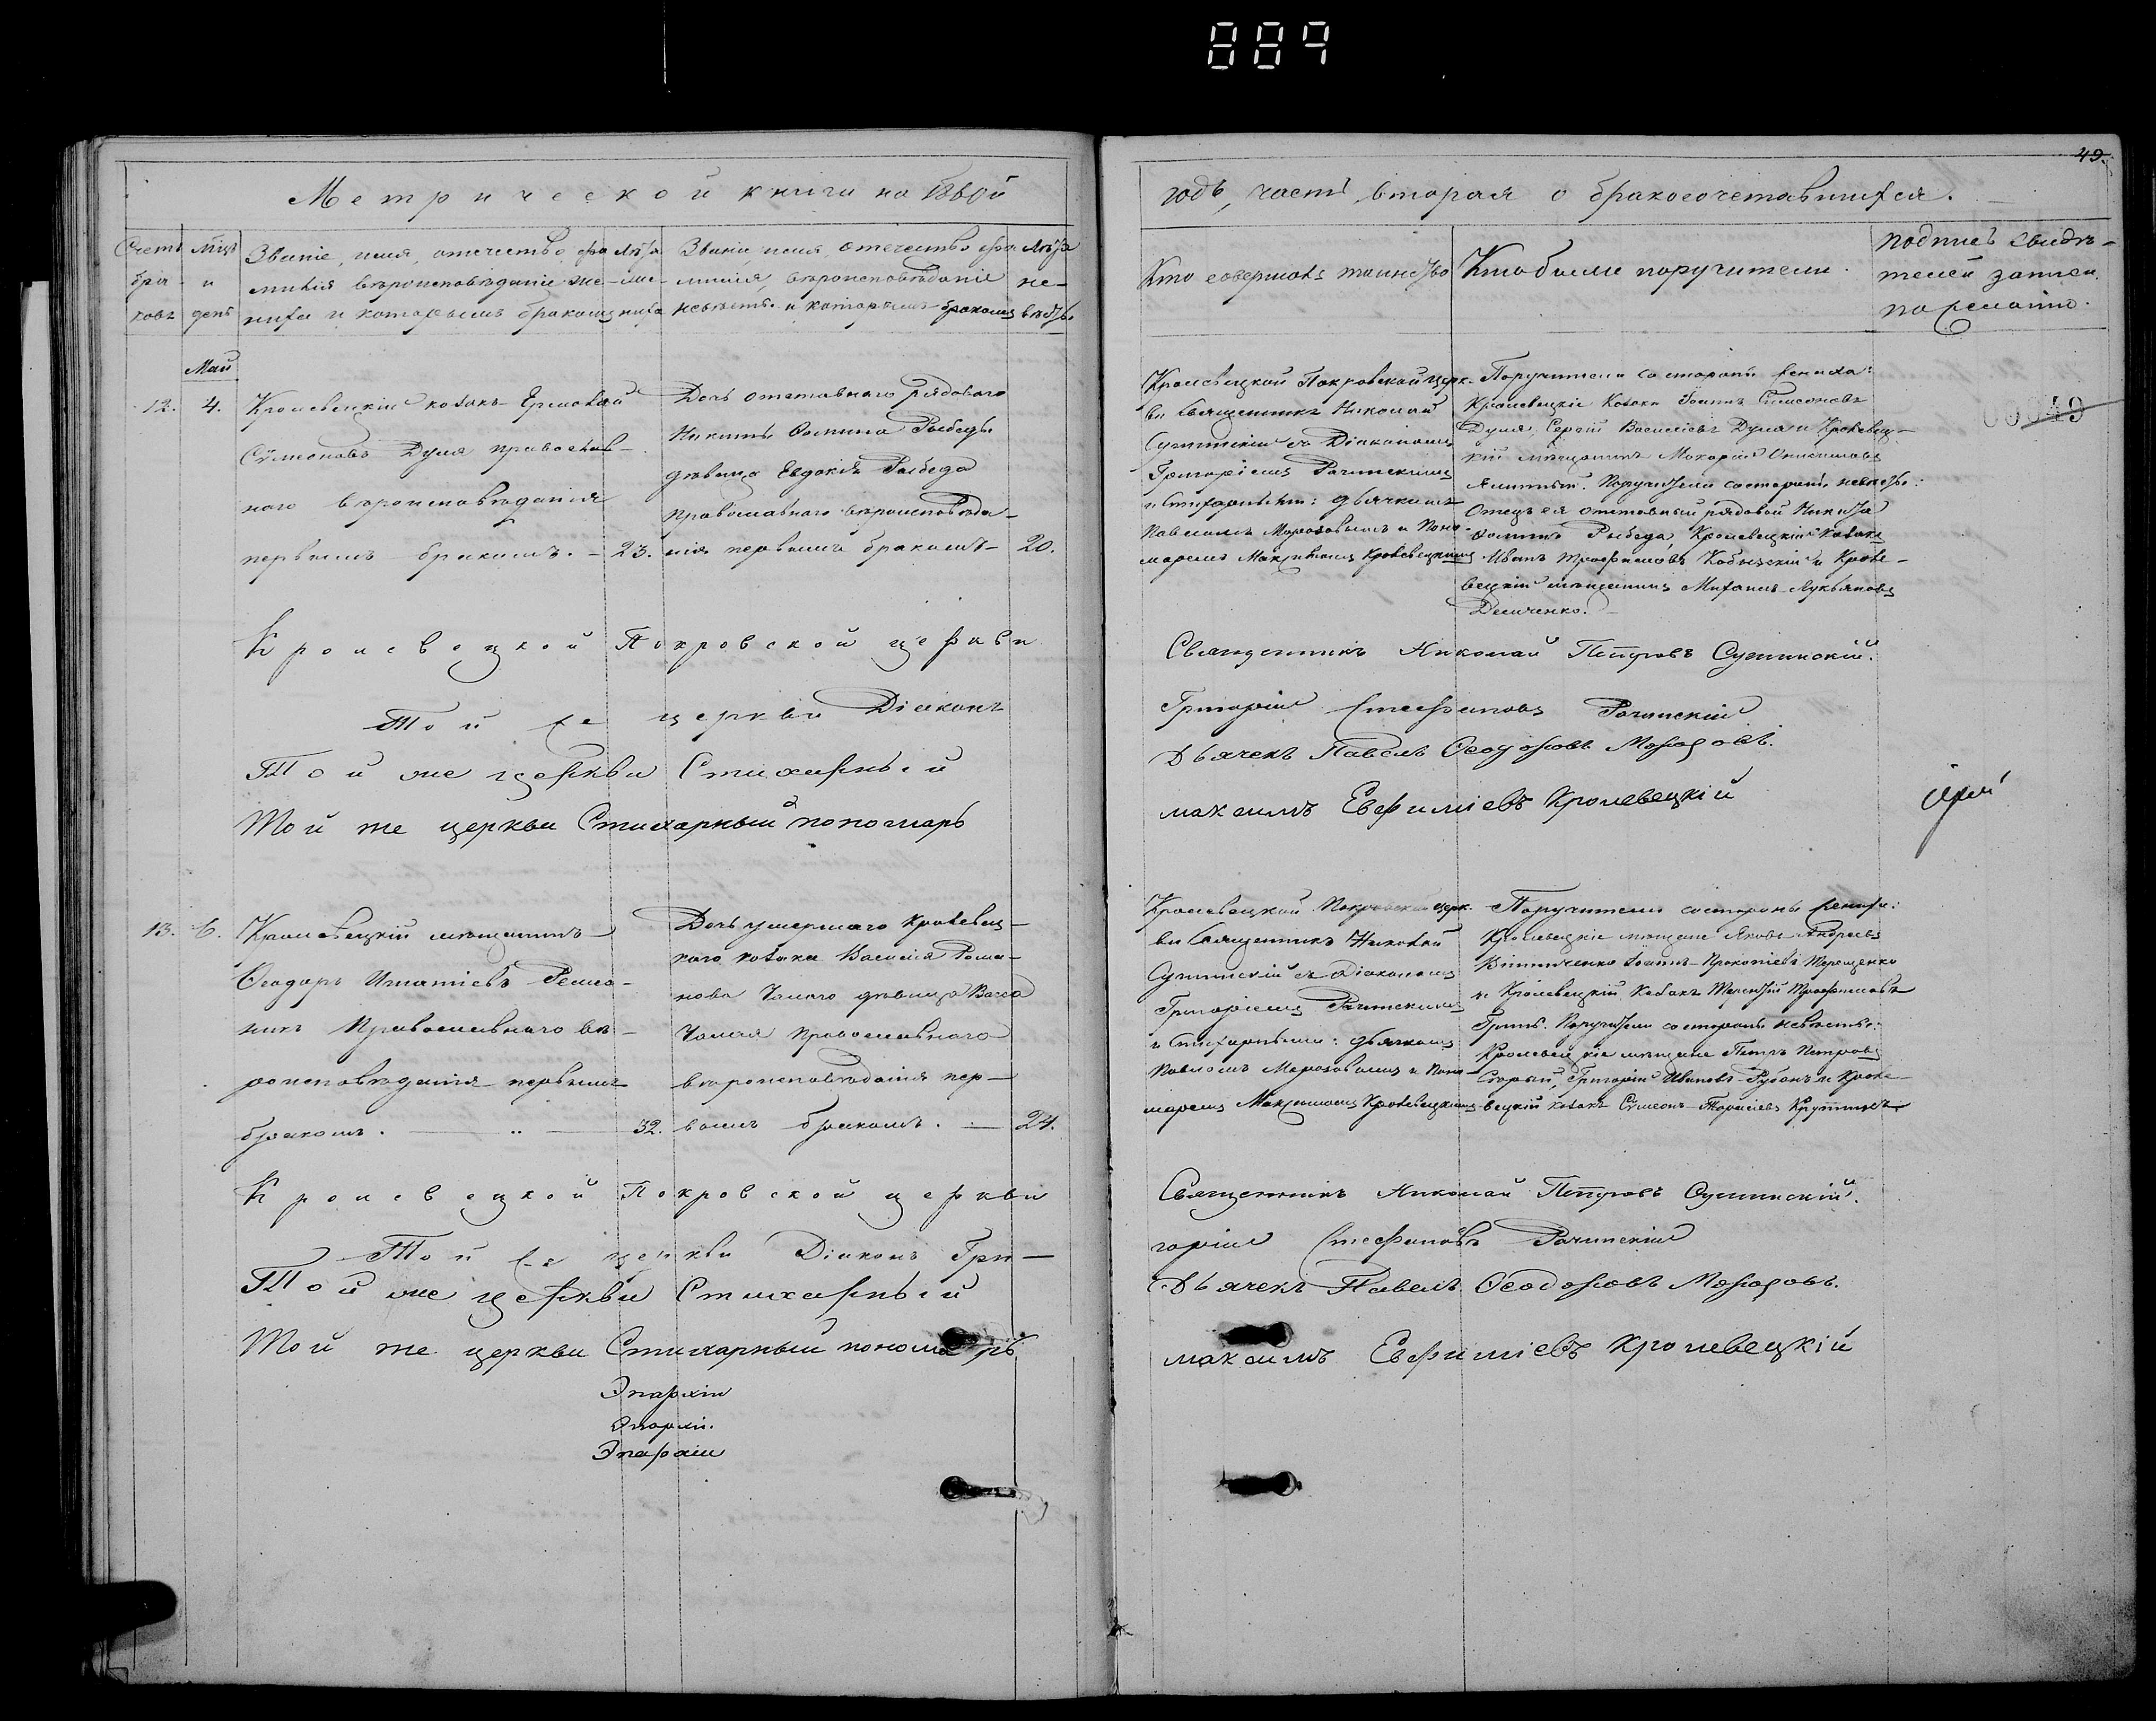 889
49.
Метрической книги на 1860й
годъ, часть вторая о бракосочетавшихся.
Счетъ браковъ
Мѣцъ и день
Званіе, имя, отечество, фамилія вѣроисповѣданіе жениха и которымъ бракомъ
Лѣта жениха
Званіе, имя, отечество, фамилія, вѣроисповѣданіе невѣсты и которымъ бракомъ
Лѣта невѣсты
Кто совершалъ таинство
Кто были поручители.
подпись свидѣтелей записи по желанію.
Май
12. 4.
Кролевецкій козакъ Ермолай
Сѵмеоновъ Дуля православ-
наго вѣроисповѣданія
первымъ бракомъ. - 23.
Дочь отставного рядового
Никиты Фомина Рыбеды
дѣвица Евдокія Рыбеда
православнаго вѣроисповѣда-
нія первымъ бракомъ - 20.
Кролевецкой Покровской церк-
ви Священникъ Николай
съ Діакономъ
Григоріемъ Рачинскимъ
и Стихарными: дьячкомъ
Павломъ Морозовымъ и Поно-
маремъ Максимомъ Кролевецкимъ
Поручители со стороны жениха:
Кролевецкіе Козаки Іоаннъ Симеоновъ
Дуля, Сергій Василіевъ Дуля и Кролевец-
кій мѣщанинъ Макарій Онисимовъ
Поручители со стороны невѣсты:
Отецъ ея отставный рядовой Никита
Фоминъ Рыбеда, Кролевецкій Козакъ
Иванъ Трофимовъ и Кроле-
вецкій мѣщанинъ Михаилъ Лукьяновъ
Демченко.
49
Кролевецкой Покровской церкви
Священникъ Николай Петровъ
Той же церкви Діаконъ
Григорій Стефановъ Рачинскій
Той же церкви Стихарный
Дьячекъ Павелъ Ѳеодоровъ Морозовъ.
Той же церкви Стихарный пономарь
Максимъ Евфиміевъ Кролевецкій
13. 6.
Кролевецкій мѣщанинъ
Ѳеодоръ Игнатіевъ Ремез-
никъ Православнаго вѣ-
роисповѣданія первымъ
бракомъ. 32.
Дочь умершаго Кролевец-
каго козака Василія Рома-
нова Чалаго дѣвица Васса
Чалая Православнаго
вѣроисповѣданія пер-
вымъ бракомъ. 24.
Кролевецкой Покровской церк-
ви Священникъ Николай
съ Діакономъ
Григоріемъ Рачинскимъ
и Стихарными: дьячкомъ
Павломъ Морозовымъ и Поно-
маремъ Максимомъ Кролевецкимъ
Поручители со стороны жениха:
Кролевецкіе мѣщане Яковъ Андреевъ
Іоаннъ Прокопіевъ Терещенко
и Кролевецкій Козакъ Терентій Трофимовъ
Поручители со стороны невѣсты:
Кролевецкіе мѣщане Петръ Петровъ
Старый, Григорій Ивановъ Рубанъ и Кроле-
вецкій козакъ Сѵмеонъ Тарасіевъ
Кролевецкой Покровской церкви
Священникъ Николай Петровъ
Той же церкви Діаконъ Гри-
горій Стефановъ Рачинскій
Той же церкви Стихарный
Дьячекъ Павелъ Ѳеодоровъ Морозовъ.
Той же церкви Стихарный пономарь
Максимъ Евфиміевъ Кролевецкій
Эпархіи
Эпархіи.
Эпархіи